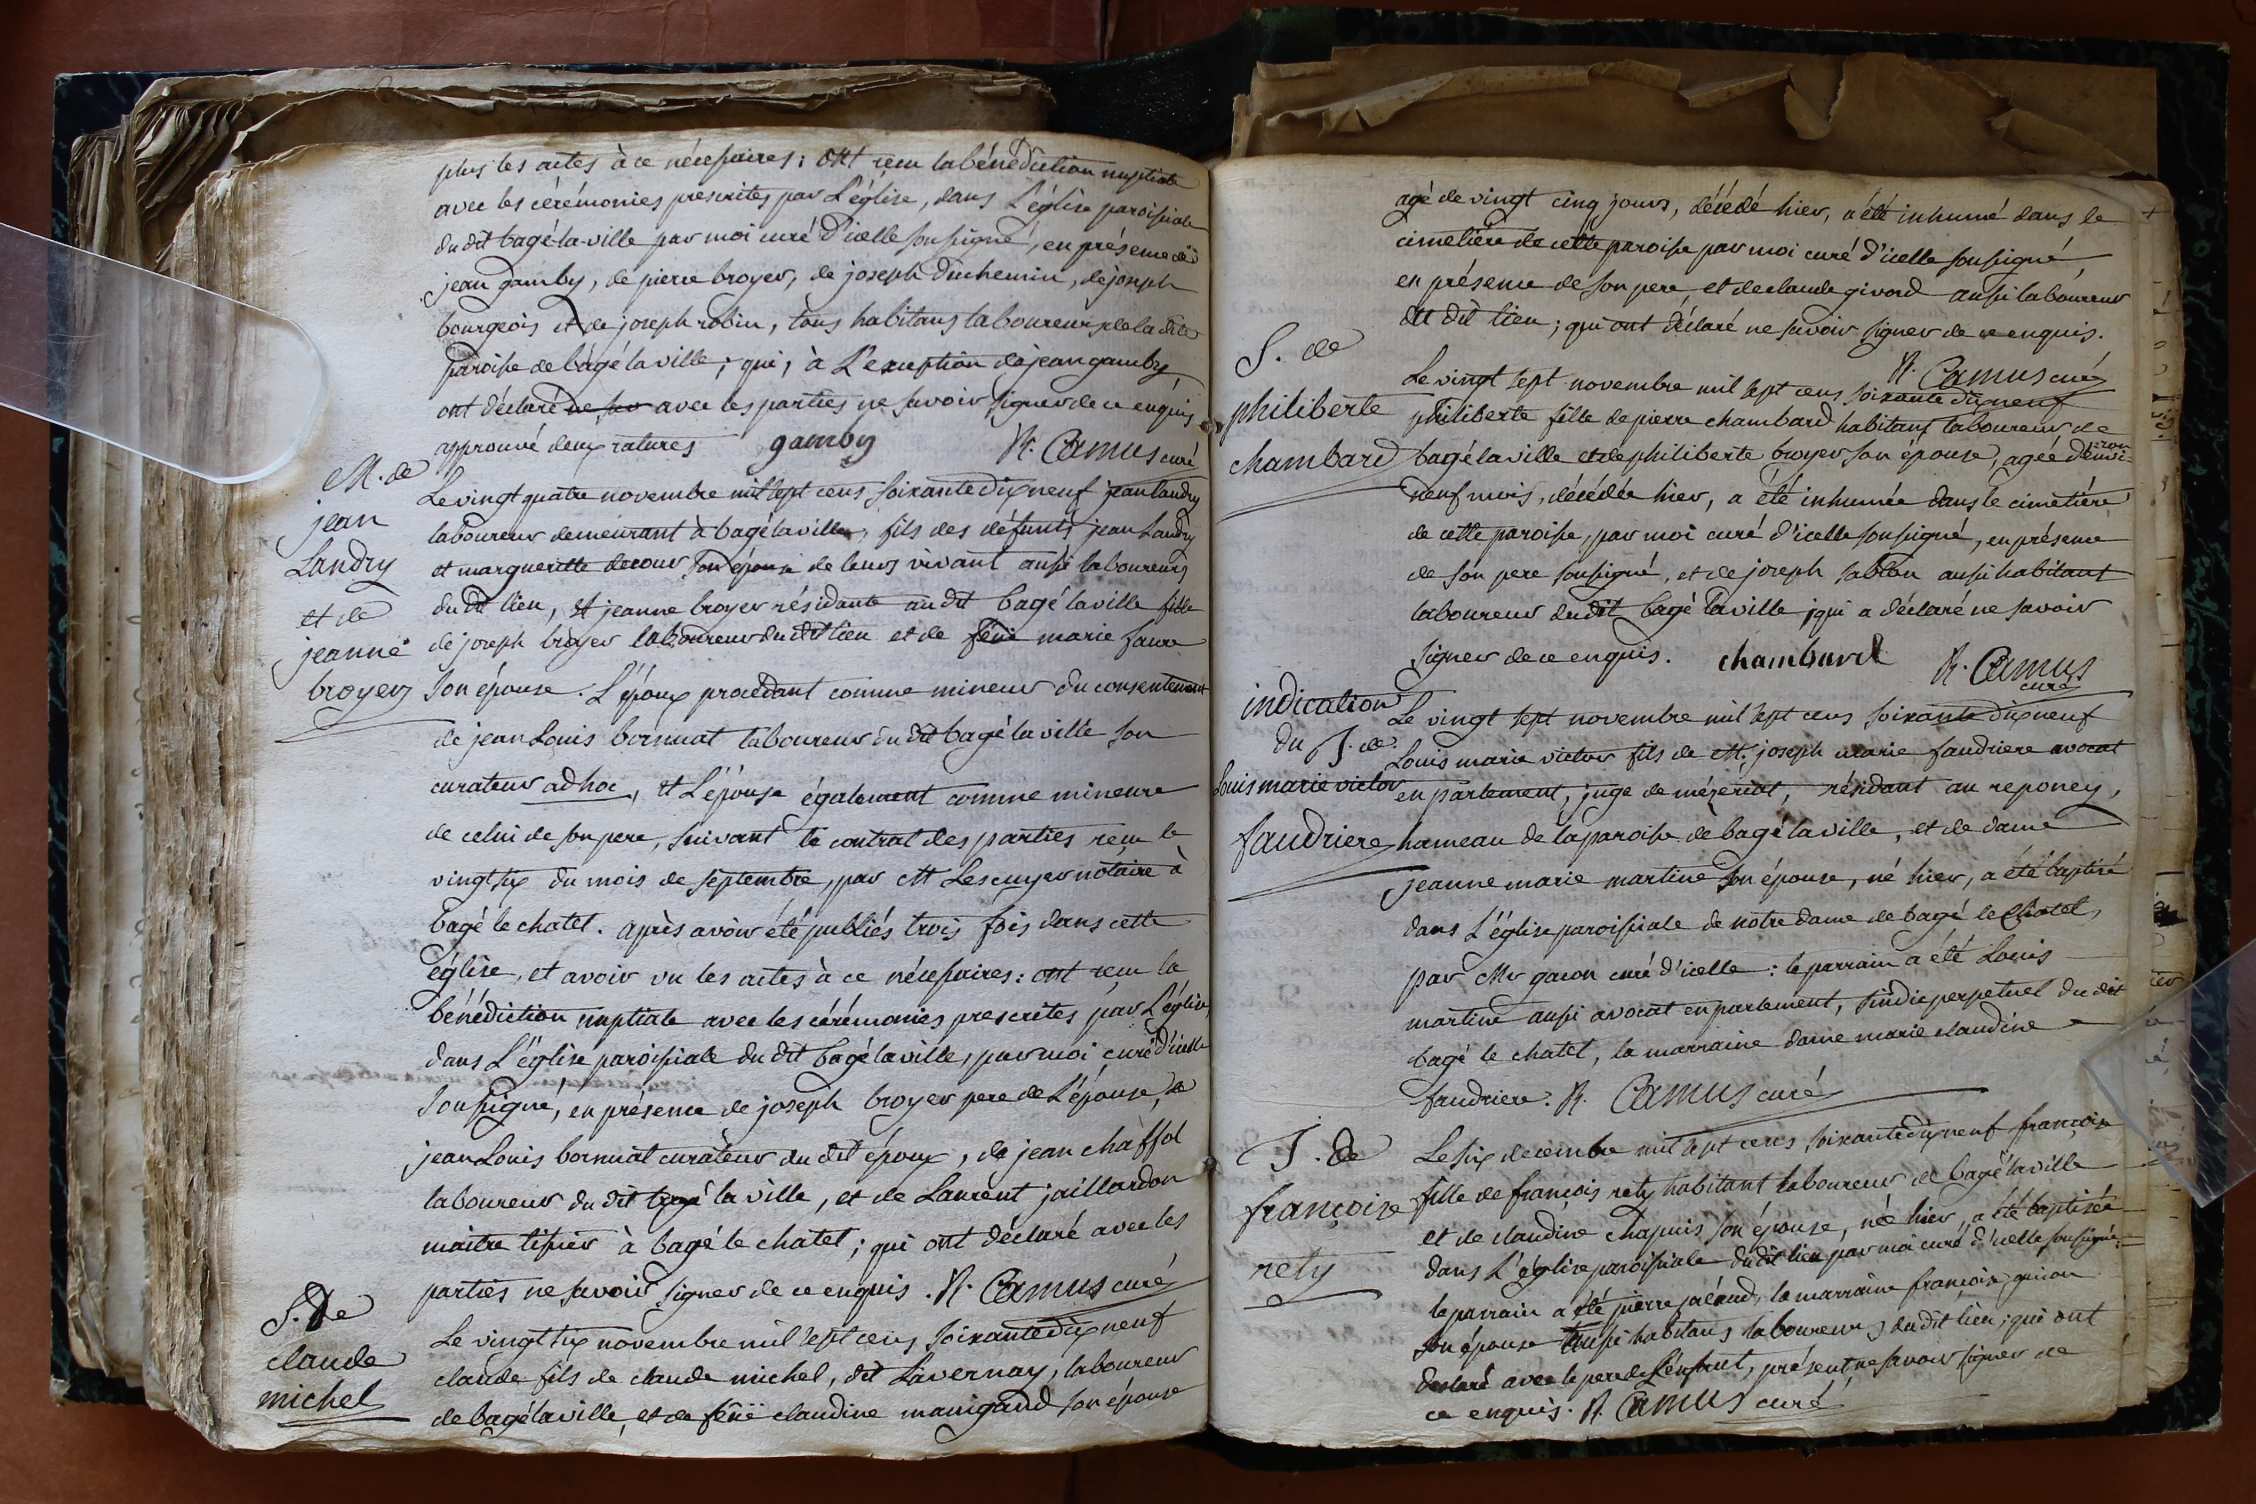 plus les actes à ce nécessaires : ont reçu la bénédiction nuptiale
avec les cérémonies prescrites par L'église, dans L'église paroissiale
du dit bagé-la-ville par moi curé d'icelle soussigné, en présence de
jean gamby, de pierre broyer, de joseph duchemin, de joseph
bourgeois et de joseph robin, tous habitans laboureurs de la dite
paroisse de bâgé la ville ; qui, à L'exception de jean gamby,
ont déclaré avec les parties ne savoir signer de ce enquis
approuvé deux ratures gamby R. Camus curé
M. de
jean
Landry
et de
jeanne
broyer
Le vingt quatre novembre mil sept cens soixante dix neuf jean landry
laboureur demeurant à bagé la ville, fils des défunts jean Landry
et marguerite decour son épouse de leurs vivant aussi laboureurs
du dit lieu, et jeanne broyer résidante au dit bagé la ville fille
de joseph broyer laboureur du dit lieu et de marie faure
son épouse. L'époux procédant comme mineur du consentement
de jean Louis bornuat laboureur du dit bagé la ville son
curateur ad hoc, et L'épouse également comme mineure
de celui de son pere, suivant le contrat des parties reçu le
vingt six du mois de septembre, par M Lescuyer notaire à
bagé le chatel. après avoir été publiés trois fois dans cette
église, et avoir vu les actes à ce nécessaires : ont reçu la
bénédiction nuptiale avec les cérémonies prescrites par L'église,
dans L'église paroissiale du dit bagé la ville, par moi curé d'icelle
soussigné, en présence de joseph broyer pere de L'épouse, de
jean Louis bornuat curateur du dit époux, de jean chaffol
laboureur du dit bagé la ville, et de Laurent jaillardon
maitre tissier à bagé le chatel ; qui ont déclaré avec les
parties ne savoir signer de ce enquis. R. Camus curé
S. de
claude
michel
Le vingt six novembre mil sept cens soixante dix neuf
claude fils de claude michel, dit Lavernay, laboureur
de bagé la ville, et de claudine manigand son épouse
agé de vingt cinq jours, décédé hier, a été inhumé dans le
cimetière de cette paroisse par moi curé d'icelle soussigné
en présence de son pere, et de claude givord aussi laboureur
du dit lieu ; qui ont déclaré ne savoir signer de ce enquis.
R. Camus curé
S. de
philiberte
chambard
Le vingt sept novembre mil sept cens soixante dix neuf
philiberte fille de pierre chambard habitant laboureur de
bagé la ville et de philiberte broyer son épouse, agée d'environ
neuf mois, décédée hier, a été inhumée dans le cimetière
de cette paroisse, par moi curé d'icelle soussigné, en présence
de son pere soussigné, et de joseph sablon aussi habitant
laboureur du dit bagé la ville qui a déclaré ne savoir
signer de ce enquis. chambard R. Camus
curé
indication
du J. de
Louis marie victor
faudriere
Le vingt sept novembre mil sept cens soixante dix neuf
Louis marie victor fils de M. joseph marie faudriere avocat
en parlement, juge de mézeriat, résidant au reponey,
hameau de la paroisse de bagé la ville, et de dame
jeanne marie martine son épouse, né hier, a été baptisé
dans L'église paroissiale de notre dame de bagé le chatel,
par Mr gacon curé d'icelle : le parrain a été Louis
martine aussi avocat en parlement, sindic perpetuel du dit
bagé le chatel, la marraine dame marie claudine
faudriere. R. Camus curé
J. de
françoise
rety
Le six decembre mil sept cens soixante dix neuf françoise
fille de françois rety habitant laboureur de bagé la ville
et de claudine chapuis son épouse, née hier, a été baptisée
dans L'église paroissiale du dit lieu par moi curé d'icelle soussigné :
le parrain a été pierre jaland, la marraine françoise guion
son épouse aussi habitans laboureurs du dit lieu ; qui ont
déclaré avec le pere de L'enfant, présent, ne savoir signer de
ce enquis. R. Camus curé